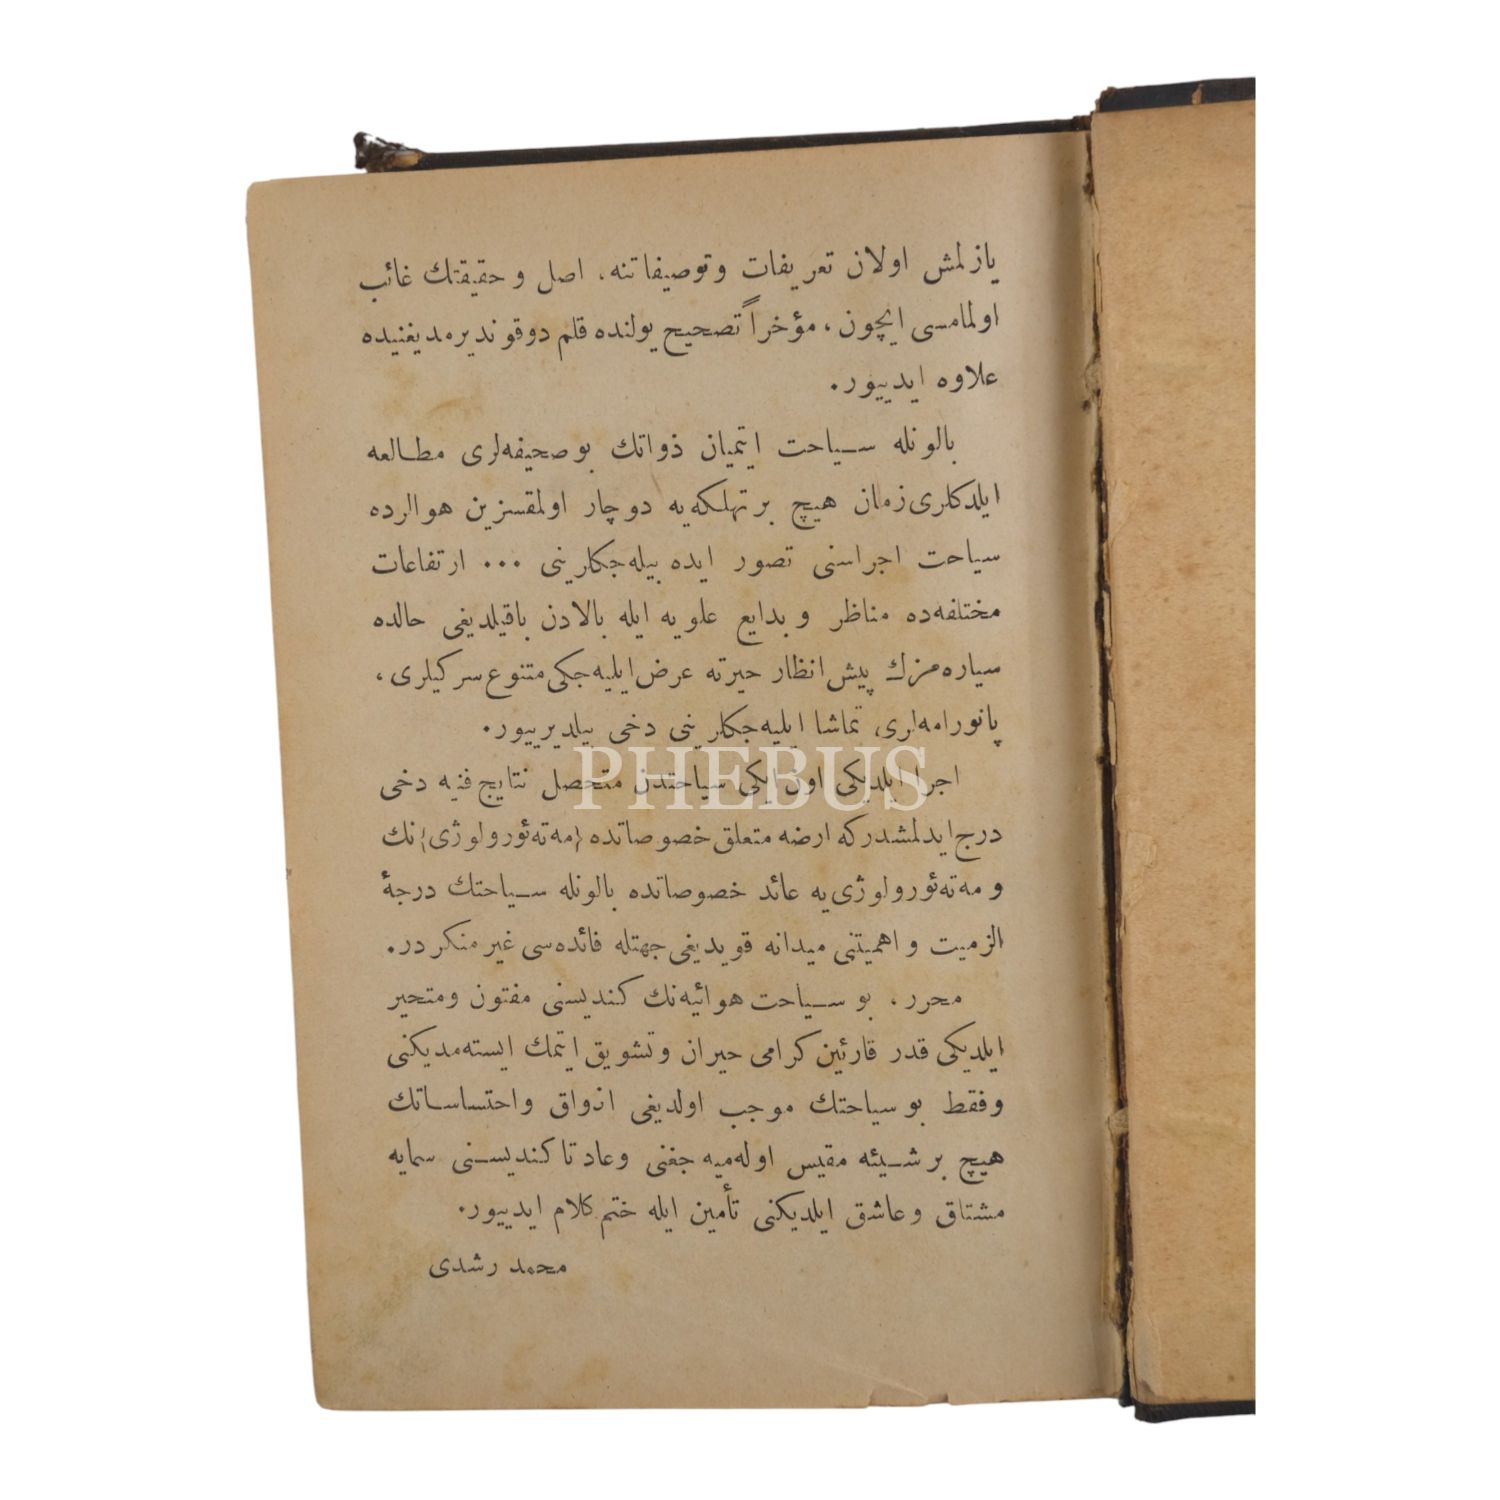 يازلمش اولان تعريفات وتوصيفاتنه، اصل و حقيقتك غائب
اولمامسى ايچون، مؤخراً تصحيح يولنده قلم دوقونديرمديغنيده
علاوه ايدييور.
بالونله سياحت ايتميان ذواتك بو صحيفه‌لرى مطالعه
ايلدكلرى زمان هيچ بر تهلكه‌يه دوچار اولمقسزين هوالرده
سياحت اجراسنى تصور ايده بيله‌جكلرينى ... ارتفاعات
مختلفه‌ده مناظر و بدايع علويه ايله بالادن باقيلديغى حالده
سياره‌مزك پيش انظار حيرته عرض ايليه‌جكى متنوع سركيلرى،
پانورامه‌لرى، تماشا ايليه‌جكلرينى دخى بيلديرييور.
PHEBUS
اجرا ايلديكى اون ايكى سياحتدن متحصل نتايج فنيه دخى
درج ايدلمشدركه ارضه متعلق خصوصاتده (مه‌ته‌ئورولوژى) نك
و مه‌ته‌ئورولوژى‌يه عائد خصوصاتده بالونله سياحتك درجۀ
الزميت و اهميتنى ميدانه قويديغى جهتله فائده‌سى غير منكردر.
محرر، بو سياحت هوائيه‌نك كنديسنى مفتون ومتحير
ايلديكى قدر قارئين كرامى حيران وتشويق ايتمك ايسته‌مديكنى
وفقط بو سياحتك موجب اولديغى اذواق واحتساساتك
هيچ بر شيئه مقيس اوله‌ميه جغنى وعادتا كنديسنى سمايه
مشتاق وعاشق ايلديكنى تأمين ايله ختم كلام ايدييور.
محمد رشدى